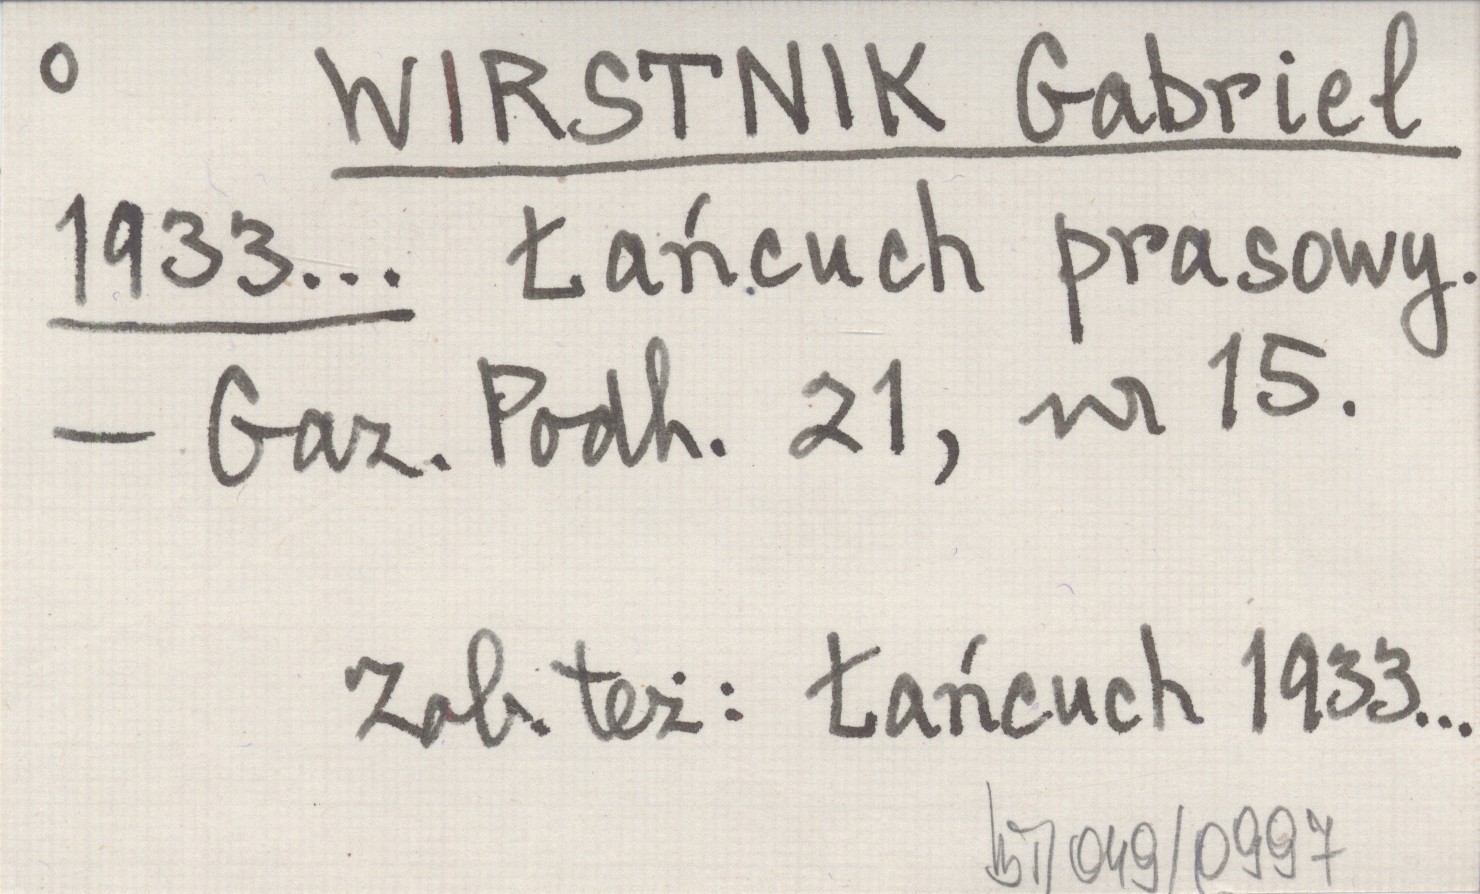 o WIRSTNIK Gabriel
1933... Łańcuch prasowy.
— Gaz. Podh. 21, nr 15.
Zob. też: Łańcuch 1933...
049/0997